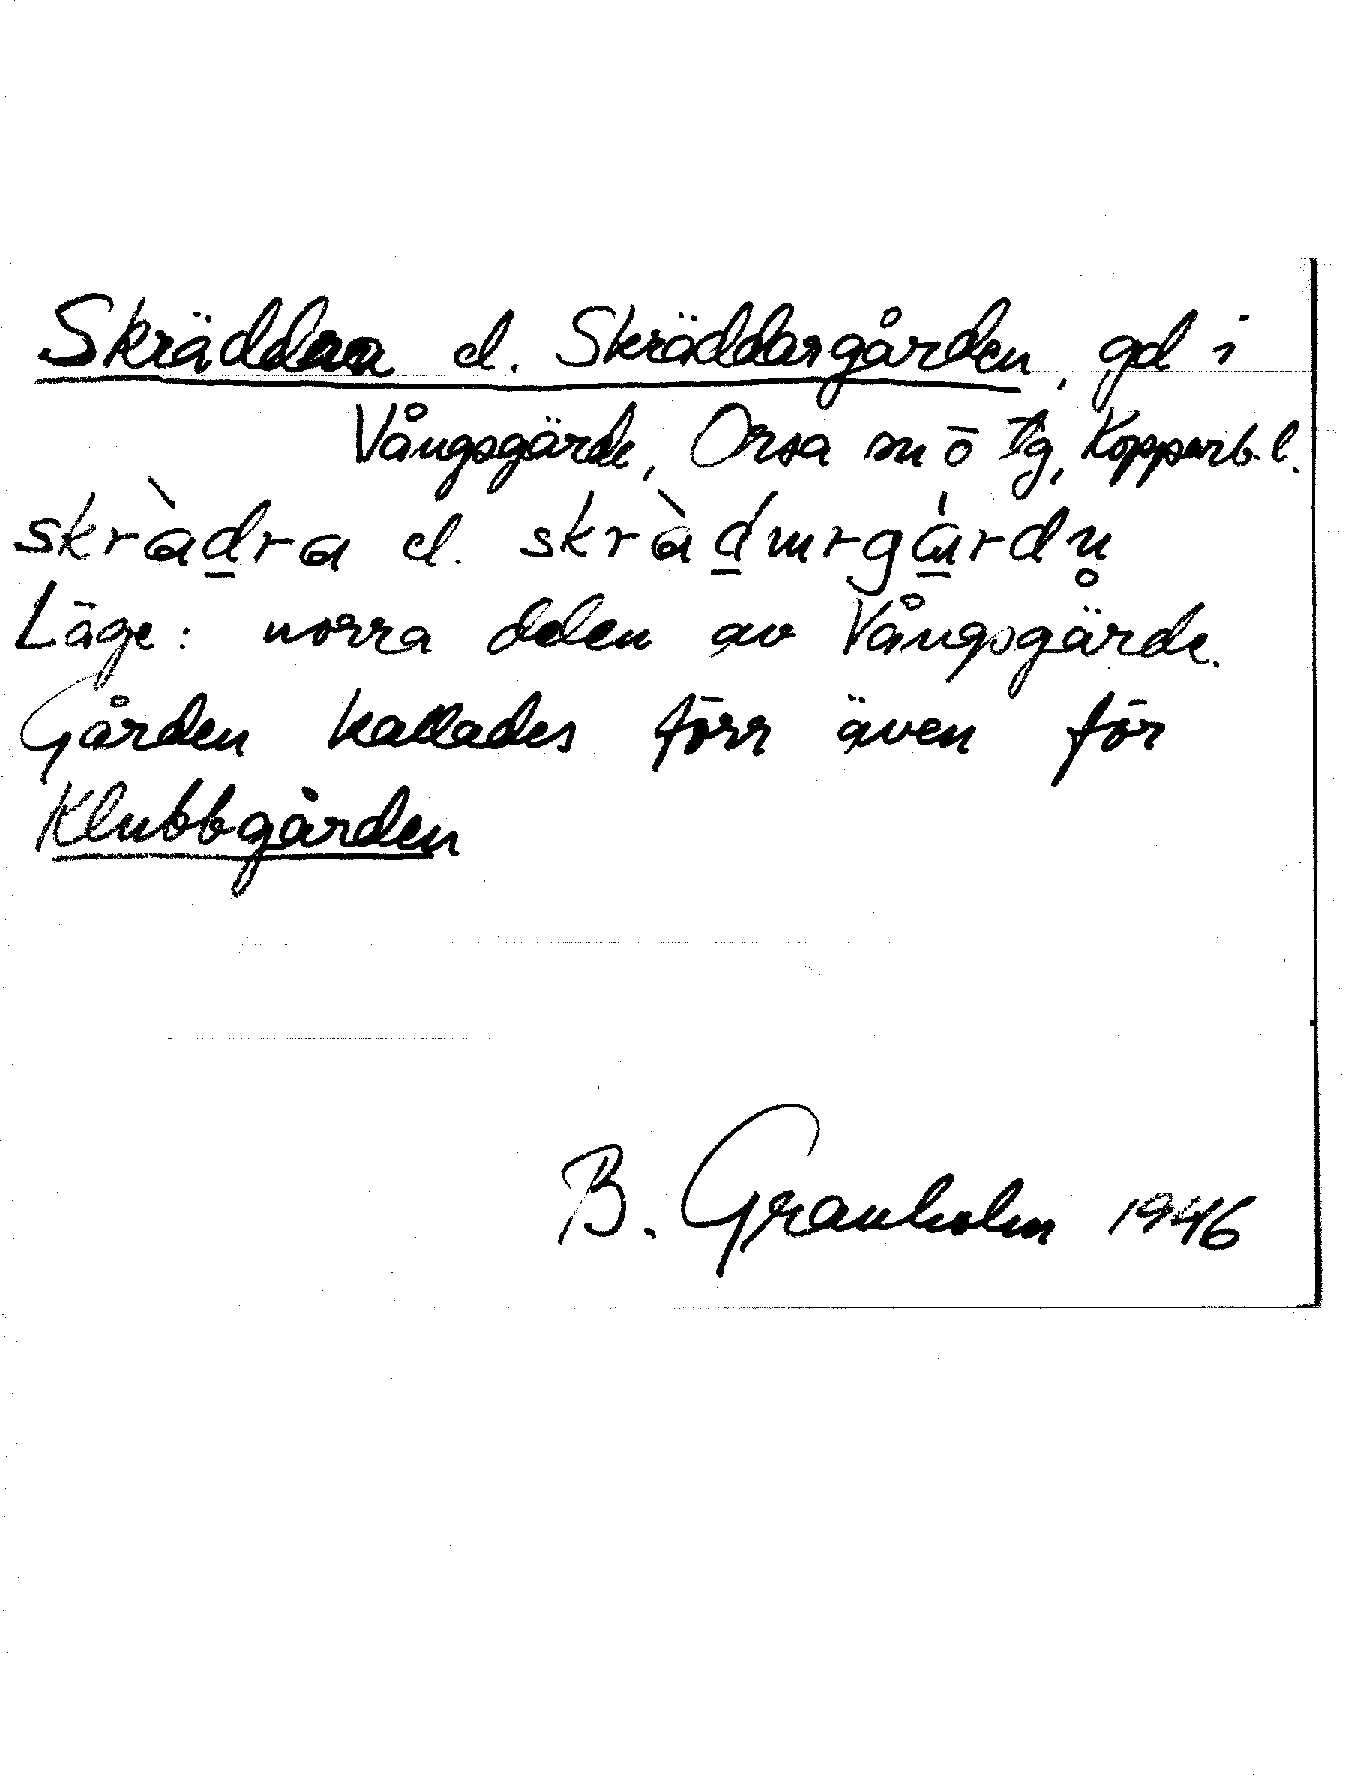 Skräddaa el. Skräddargården, gd i
Vångsgärde, Orsa sn o tg, Kopparb. l.
skràdra el. skràdurgárdu
Läge: norra delen av Vångsgärde.
Gården kallades förr även för
Klubbgården
B. Granholm 1946